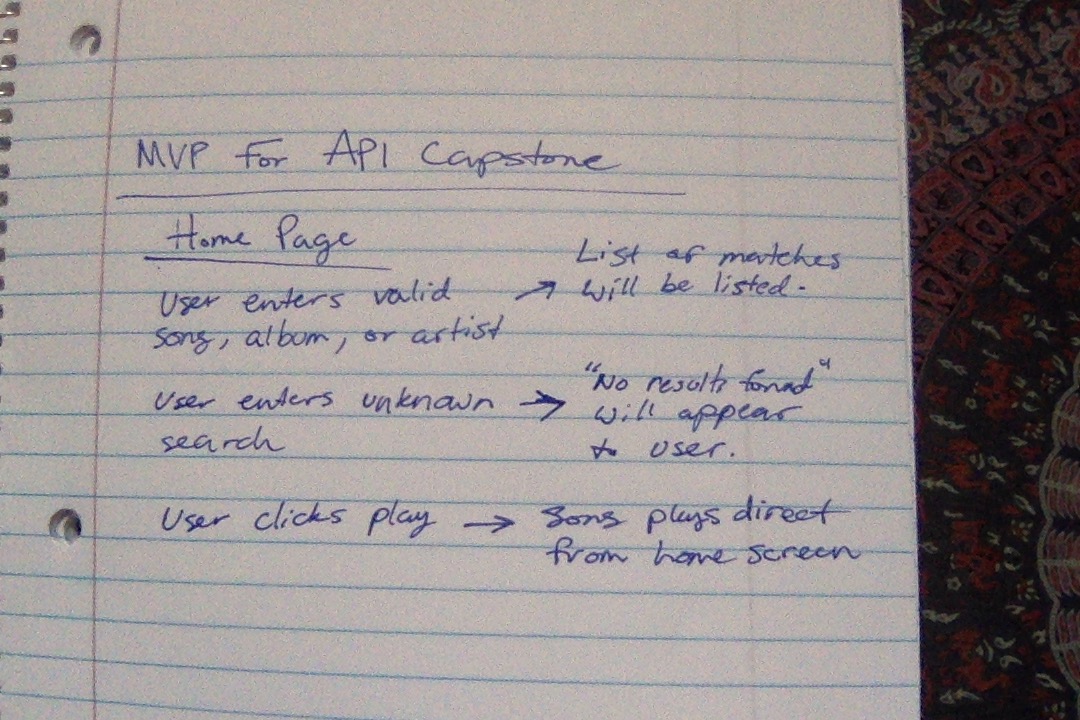 MVP For API Capstone
Home Page
User enters valid
song, album, or artist
→ List of matches
will be listed.
User enters unknown
search
→ "No results found"
will appear
to user.
User clicks play → Song plays direct
from home screen